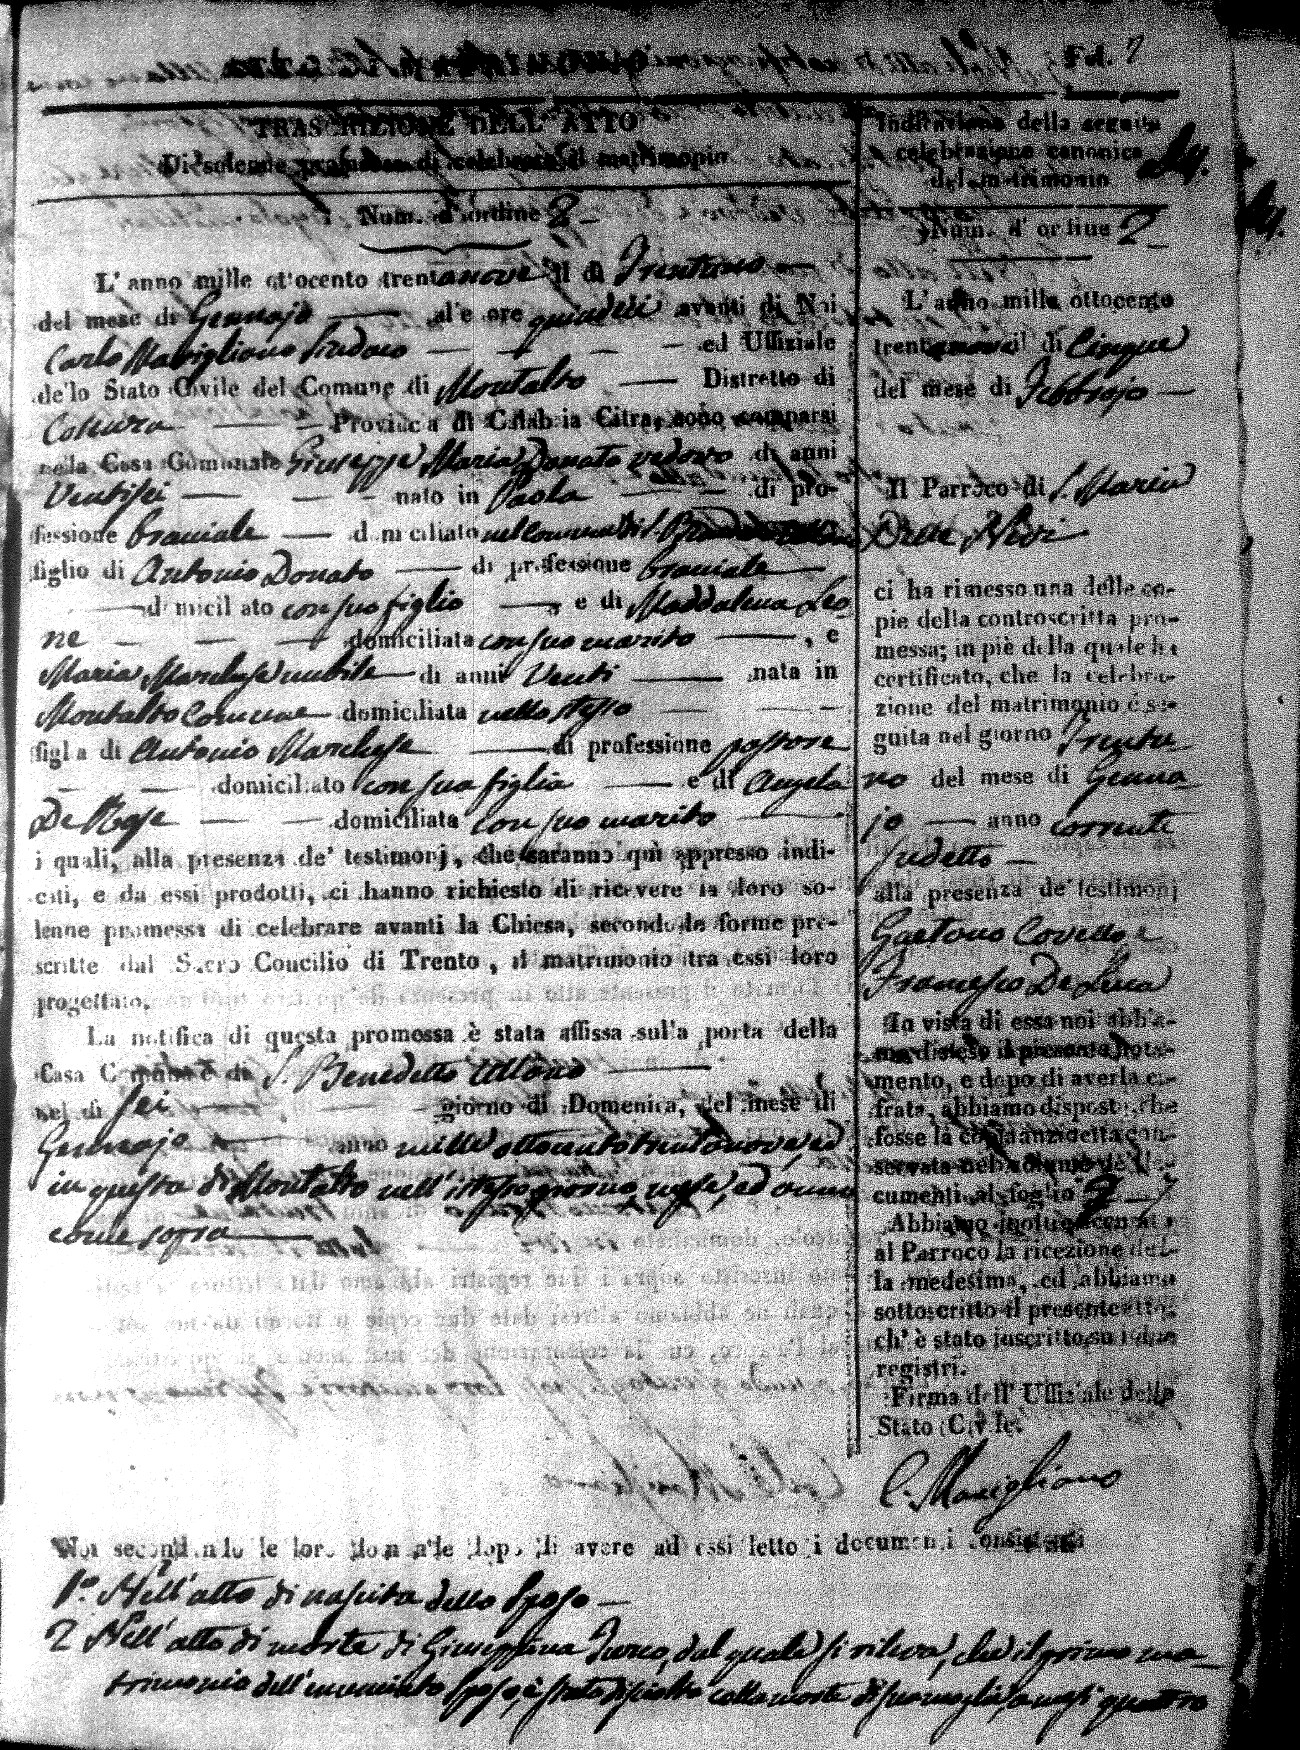 Fol. 7
TRASCRIZIONE DELL' ATTO
Di solenne promessa di celebrare il matrimonio
Num. d'ordine 2
L' anno mille ottocento trentanove il dì Trentuno
del mese di Gennajo alle ore quindici avanti di Noi
Carlo Marigliano Sindaco ed Uffiziale
dello Stato Civile del Comune di Montalto Distretto di
Cosenza Provincia di Calabria Citra, sono comparsi
nella Casa Comunale Giuseppe Maria Donato vedovo di anni
Ventisei nato in Paola di pro-
fessione braciale domiciliato nel Comune di S.
figlio di Antonio Donato di professione braciale
domiciliato con suo figlio , e di Maddalena Leo
ne domiciliata con suo marito , e
Maria Marchese nubile di anni Venti nata in
Montalto Comune domiciliata nello stesso
figlia di Antonio Marchese di professione pastore
domiciliato con sua figlia e di Angela
De Rose domiciliata con suo marito
i quali, alla presenza de' testimonj, che saranno quì appresso indi-
cati, e da essi prodotti, ci hanno richiesto di ricevere la loro so-
lenne promessa di celebrare avanti la Chiesa, secondo le forme pre-
scritte dal Sacro Concilio di Trento, il matrimonio tra essi loro
progettato.
La notifica di questa promessa è stata affissa sulla porta della
Casa Comunale di S. Benedetto Ullano
nel dì sei giorno di Domenica, del mese di
Gennajo anno mille ottocento trentanove, ed
in questa di Montalto nell' istesso giorno, mese, ed anno
come sopra
Indicazione della seguita
celebrazione canonica
del matrimonio
Num. d' ordine 2
L' anno mille ottocento
trentanove il dì Cinque
del mese di Febbrajo
Il Parroco di S. Maria
Della Nevi
ci ha rimesso una delle co-
pie della controscritta pro-
messa; in piè della quale ha
certificato, che la celebra-
zione del matrimonio è se-
guita nel giorno Trentu
no del mese di Genna
jo anno corrente
sudetto
alla presenza de' testimonj
Gaetano Covello e
Francesco De Luca
In vista di essa noi abbia-
mo disteso il presente nota-
mento, e dopo di averla ci-
frata, abbiamo disposto, che
fosse la copia anzidetta con-
servata nel volume de' do-
cumenti al foglio 7
Abbiamo inoltre accusato
al Parroco la ricezione del-
la medesima, ed abbiamo
sottoscritto il presente atto,
ch' è stato inscritto su i due
registri.
Firma dell' Uffiziale dello
Stato Civile.
C. Marigliano
Noi secondando le loro domande dopo di avere ad essi letto i documenti consistenti
1.° Nell' atto di nascita dello Sposo
2 Nell' atto di morte di Giuseppina Turco, dal quale si rileva, che il primo ma-
trimonio dell' enunciato Sposo, è stato disciolto colla morte di sua moglie, a mesi quattro